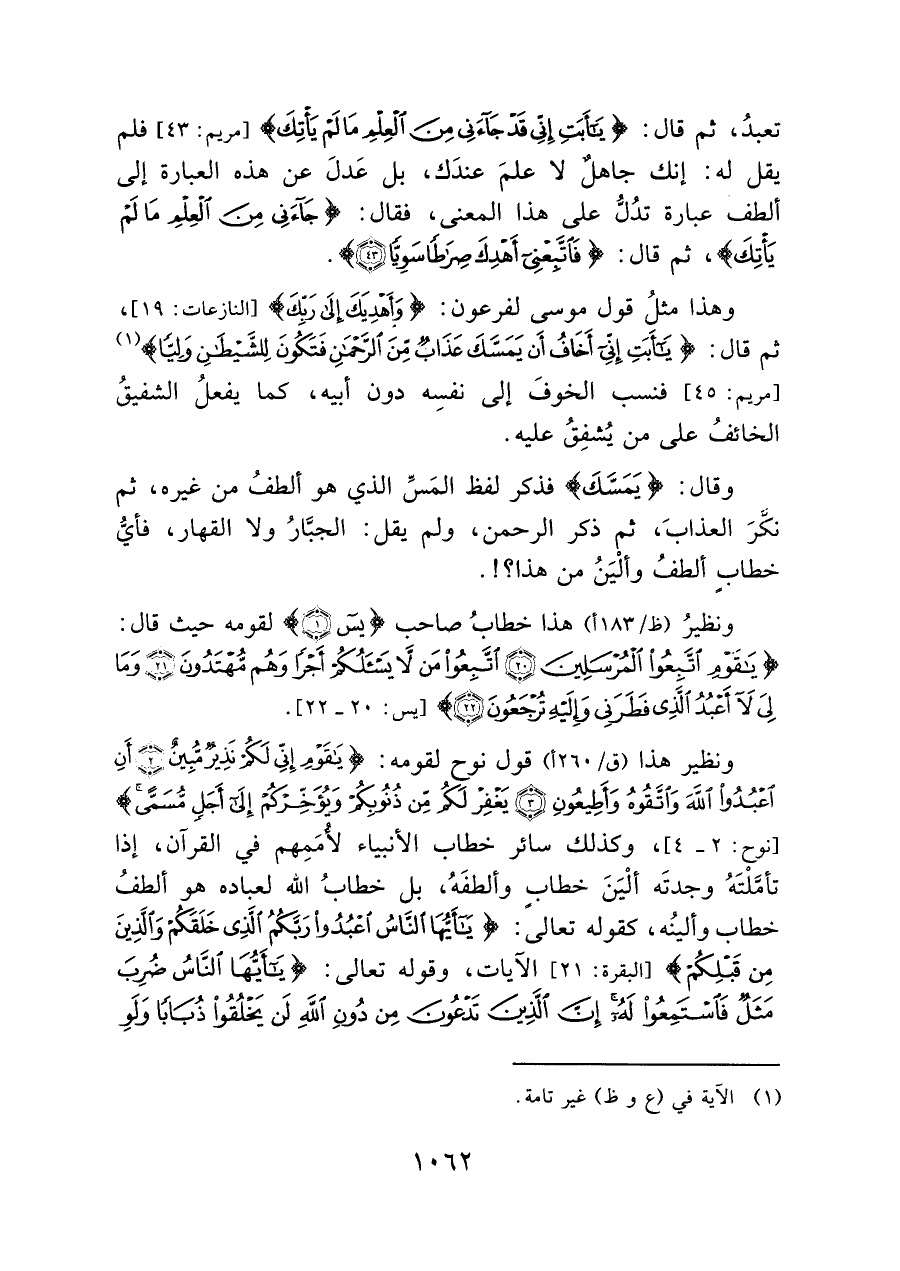 تعبدُ، ثم قال: ﴿يَٰٓأَبَتِ إِنِّي قَدْ جَآءَنِي مِنَ ٱلْعِلْمِ مَا لَمْ يَأْتِكَ﴾ [مريم: ٤٣] فلم
يقل له: إنك جاهلٌ لا علمَ عندَك، بل عَدلَ عن هذه العبارة إلى
ألطف عبارة تدُلُّ على هذا المعنى، فقال: ﴿جَآءَنِي مِنَ ٱلْعِلْمِ مَا لَمْ
يَأْتِكَ﴾، ثم قال: ﴿فَٱتَّبِعْنِيٓ أَهْدِكَ صِرَٰطًا سَوِيًّا ٤٣﴾.
وهذا مثلُ قول موسى لفرعون: ﴿وَأَهْدِيَكَ إِلَىٰ رَبِّكَ﴾ [النازعات: ١٩]،
ثم قال: ﴿يَٰٓأَبَتِ إِنِّيٓ أَخَافُ أَن يَمَسَّكَ عَذَابٌ مِّنَ ٱلرَّحْمَٰنِ فَتَكُونَ لِلشَّيْطَٰنِ وَلِيًّا﴾(١)
[مريم: ٤٥] فنسب الخوفَ إلى نفسِه دون أبيه، كما يفعلُ الشفيقُ
الخائفُ على من يُشفِقُ عليه.
وقال: ﴿يَمَسَّكَ﴾ فذكر لفظ المَسِّ الذي هو ألطفُ من غيره، ثم
نكَّرَ العذابَ، ثم ذكر الرحمن، ولم يقل: الجبَّارُ ولا القهار، فأيُّ
خطابٍ ألطفُ وألْيَنُ من هذا؟!.
ونظيرُ (ظ/١٨٣أ) هذا خطابُ صاحب ﴿يسٓ ١﴾ لقومه حيث قال:
﴿يَٰقَوْمِ ٱتَّبِعُوا۟ ٱلْمُرْسَلِينَ ٢٠ ٱتَّبِعُوا۟ مَن لَّا يَسْـَٔلُكُمْ أَجْرًا وَهُم مُّهْتَدُونَ ٢١ وَمَا
لِيَ لَآ أَعْبُدُ ٱلَّذِي فَطَرَنِي وَإِلَيْهِ تُرْجَعُونَ ٢٢﴾ [يس: ٢٠ ـ ٢٢].
ونظير هذا (ق/٢٦٠أ) قول نوح لقومه: ﴿يَٰقَوْمِ إِنِّي لَكُمْ نَذِيرٌ مُّبِينٌ ٢ أَنِ
ٱعْبُدُوا۟ ٱللَّهَ وَٱتَّقُوهُ وَأَطِيعُونِ ٣ يَغْفِرْ لَكُم مِّن ذُنُوبِكُمْ وَيُؤَخِّرْكُمْ إِلَىٰٓ أَجَلٍ مُّسَمًّى ۚ﴾
[نوح: ٢ ـ ٤]، وكذلك سائر خطاب الأنبياء لأُمَمِهم في القرآن، إذا
تأمَّلْتَهُ وجدتَه ألْيَنَ خطابٍ وألطفَهُ، بل خطابُ الله لعباده هو ألطفُ
خطاب وألينُه، كقوله تعالى: ﴿يَٰٓأَيُّهَا ٱلنَّاسُ ٱعْبُدُوا۟ رَبَّكُمُ ٱلَّذِي خَلَقَكُمْ وَٱلَّذِينَ
مِن قَبْلِكُمْ﴾ [البقرة: ٢١] الآيات، وقوله تعالى: ﴿يَٰٓأَيُّهَا ٱلنَّاسُ ضُرِبَ
مَثَلٌ فَٱسْتَمِعُوا۟ لَهُۥٓ ۚ إِنَّ ٱلَّذِينَ تَدْعُونَ مِن دُونِ ٱللَّهِ لَن يَخْلُقُوا۟ ذُبَابًا وَلَوِ
(١) الآية في (ع و ظ) غير تامة.
١٠٦٢